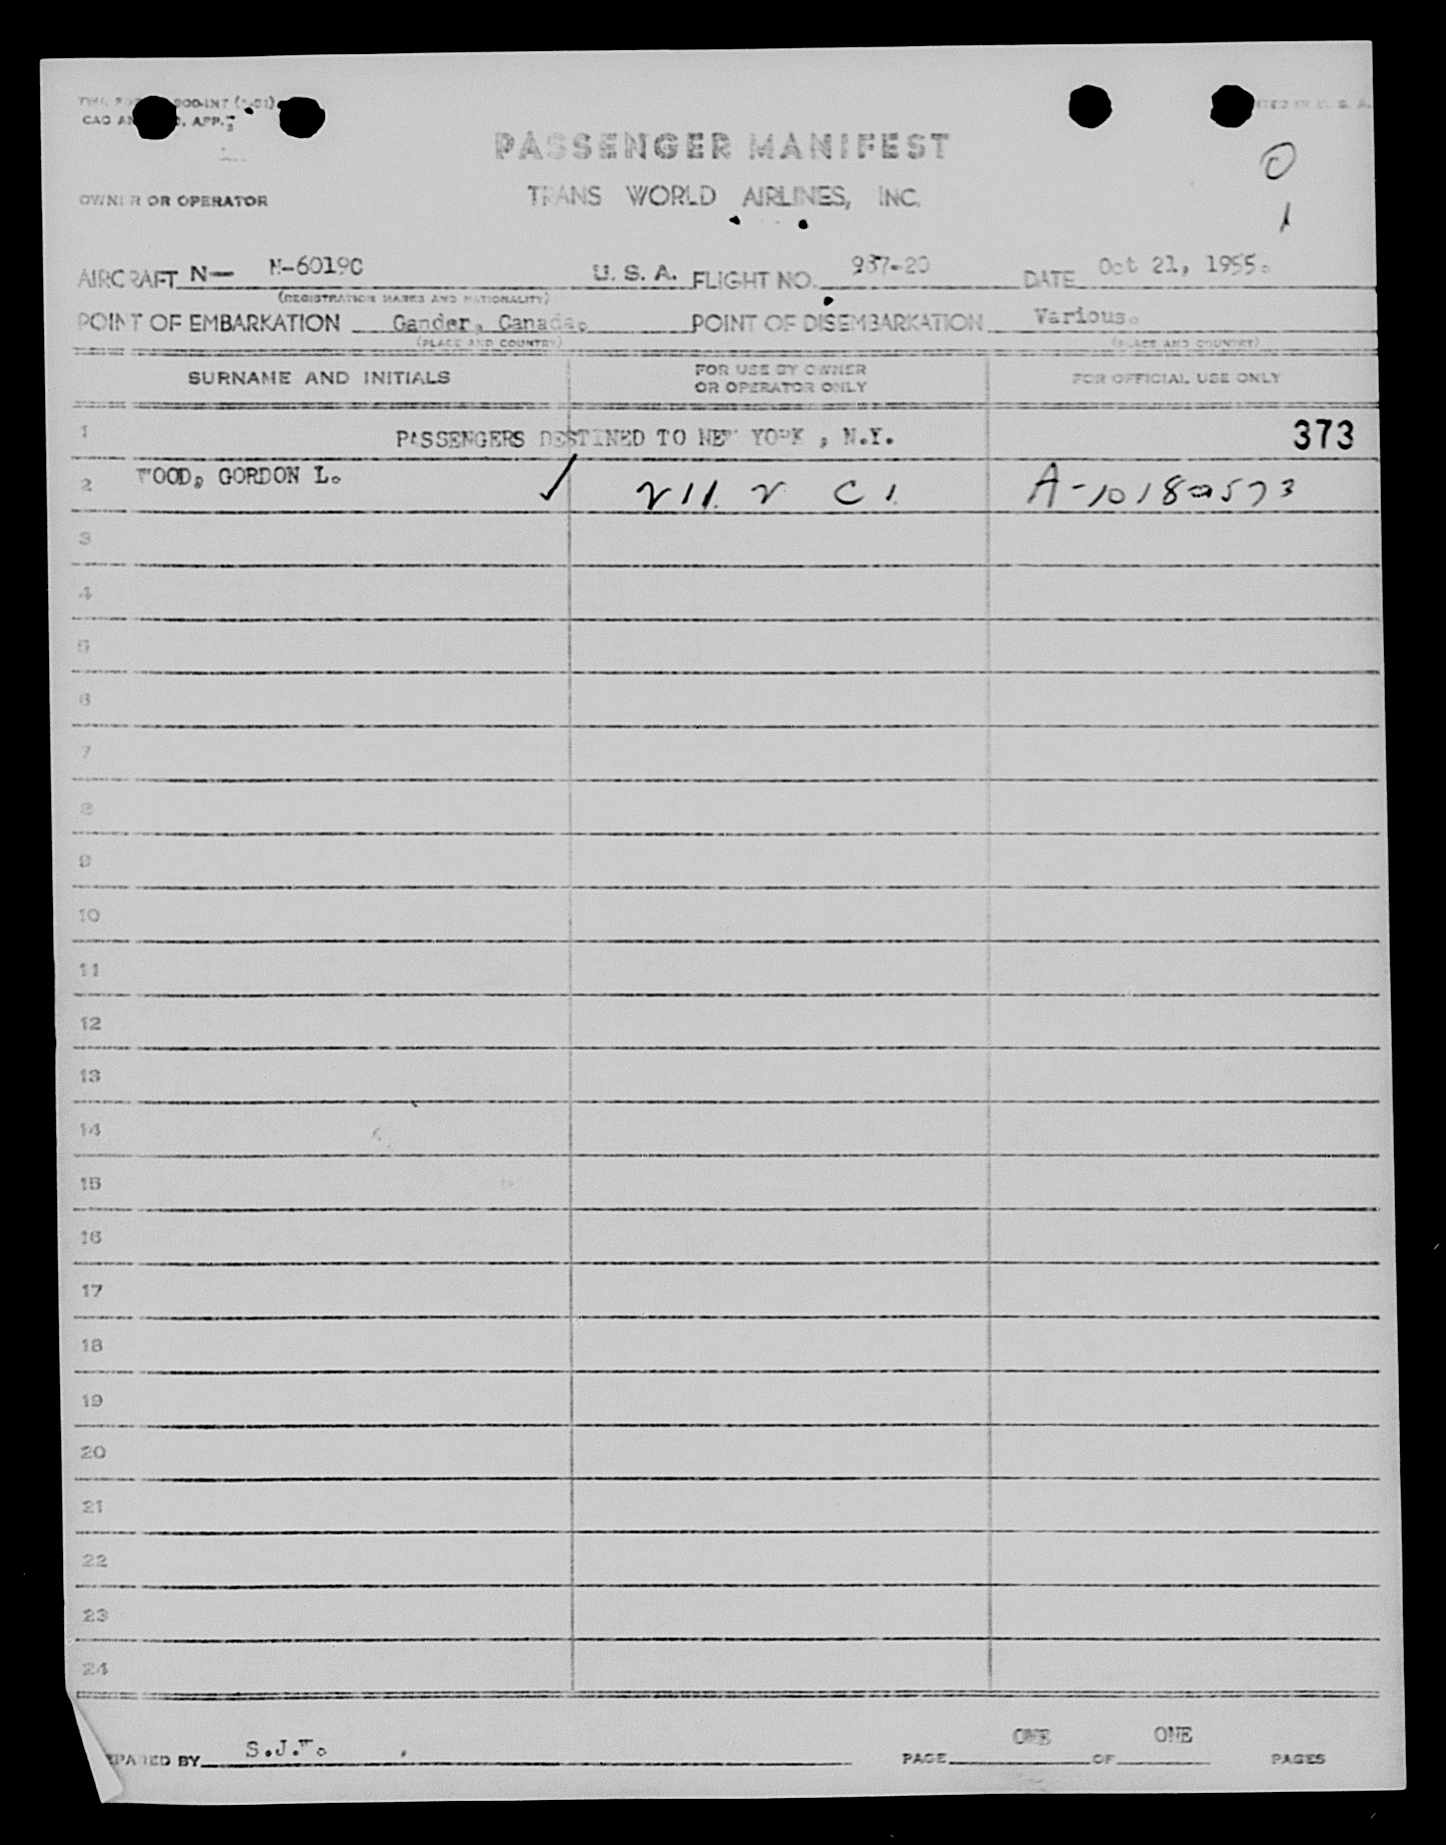 CAO AN . APP. 7
PASSENGER MANIFEST
OWNER OR OPERATOR
TRANS WORLD AIRLINES, INC.
0
1
AIRCRAFT N— N-6019C U. S. A. FLIGHT NO. 937-20 DATE Oct 21, 1955.
(REGISTRATION MARKS AND NATIONALITY)
POINT OF EMBARKATION Gander, Canada. POINT OF DISEMBARKATION Various.
(PLACE AND COUNTRY) (PLACE AND COUNTRY)
SURNAME AND INITIALS FOR USE BY OWNER OR OPERATOR ONLY FOR OFFICIAL USE ONLY
1 PASSENGERS DESTINED TO NEW YORK , N.Y. 373
2 WOOD, GORDON L. ✓ C 1. A-10180573
3
4
5
6
7
8
9
10
11
12
13
14
15
16
17
18
19
20
21
22
23
24
PREPARED BY S.J.W. PAGE ONE OF ONE PAGES